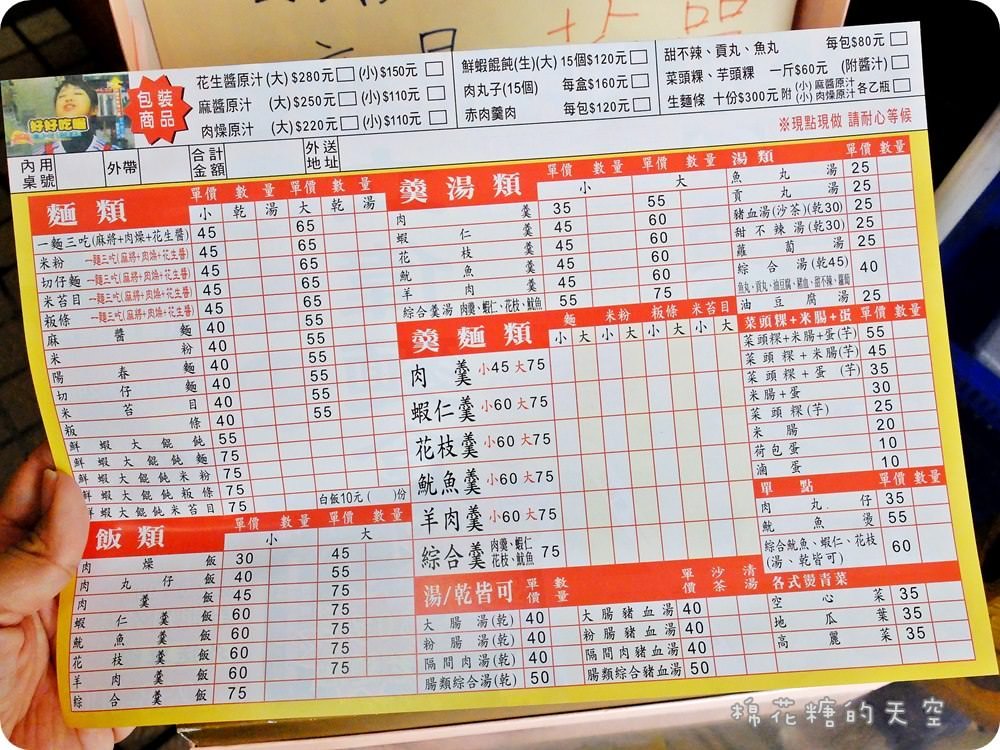 花生醬原汁(大)$280元 (小)$150元
麻醬原汁 (大)$250元 (小)$110元
肉燥原汁 (大)$220元 (小)$110元
鮮蝦餛飩(生)(大)15個$120元
肉丸子(15個) 每盒$160元
赤肉羹肉 每包$120元
甜不辣、貢丸、魚丸 每包$80元
菜頭粿、芋頭粿 一斤$60元 (附醬汁)
生麵條 十份$300元 附(小)麻醬原汁(小)肉燥原汁各乙瓶
好好吃喔
包裝商品
※現點現做 請耐心等候
內用桌號 外帶 合計金額 外送地址
麵類 單價 數量 單價 數量
小 乾 湯 大 乾 湯
一麵三吃(麻將+肉燥+花生醬) 45 65
米粉 一麵三吃(麻將+肉燥+花生醬) 45 65
切仔麵 一麵三吃(麻將+肉燥+花生醬) 45 65
米苔目 一麵三吃(麻將+肉燥+花生醬) 45 65
粄條 一麵三吃(麻將+肉燥+花生醬) 45 65
麻醬麵 40 55
米粉 40 55
陽春麵 40 55
切仔麵 40 55
米苔目 40 55
粄條 40
鮮蝦大餛飩 55
鮮蝦大餛飩麵 75
鮮蝦大餛飩米粉 75
鮮蝦大餛飩粄條 75
鮮蝦大餛飩米苔目 75
白飯10元( )份
飯類 單價 數量 單價 數量
小 大
肉燥飯 30 45
肉丸仔飯 40 55
肉羹飯 45 75
蝦仁羹飯 60 75
魷魚羹飯 60 75
花枝羹飯 60 75
羊肉羹飯 60 75
綜合羹飯 75
羹湯類 單價 數量 單價 數量
小 大
肉羹 35 55
蝦仁羹 45 60
花枝羹 45 60
魷魚羹 45 60
羊肉羹 45 60
綜合羹湯 肉羹、蝦仁、花枝、魷魚 55 75
羹麵類 麵 米粉 粄條 米苔目
小 大 小 大 小 大 小 大
肉羹 小45 大75
蝦仁羹 小60 大75
花枝羹 小60 大75
魷魚羹 小60 大75
羊肉羹 小60 大75
綜合羹 肉羹、蝦仁花枝、魷魚 75
湯/乾皆可 單價 數量 單價 沙茶 清湯
大腸湯(乾) 40 大腸豬血湯 40
粉腸湯(乾) 40 粉腸豬血湯 40
隔間肉湯(乾) 40 隔間肉豬血湯 40
腸類綜合湯(乾) 50 腸類綜合豬血湯 50
湯類 單價 數量
魚丸湯 25
貢丸湯 25
豬血湯(沙茶)(乾30) 25
甜不辣湯(乾30) 25
蘿蔔湯 25
綜合湯(乾45) 40
魚丸、貢丸、油豆腐、豬血、甜不辣、蘿蔔
油豆腐湯 25
菜頭粿+米腸+蛋 單價 數量
菜頭粿+米腸+蛋(芋) 55
菜頭粿+米腸(芋) 45
菜頭粿+蛋(芋) 35
米腸+蛋 30
菜頭粿(芋) 25
米腸 20
荷包蛋 10
滷蛋 10
單點 單價 數量
肉丸仔 35
魷魚燙 55
綜合魷魚、蝦仁、花枝(湯、乾皆可) 60
各式燙青菜
空心菜 35
地瓜葉 35
高麗菜 35
棉花糖的天空